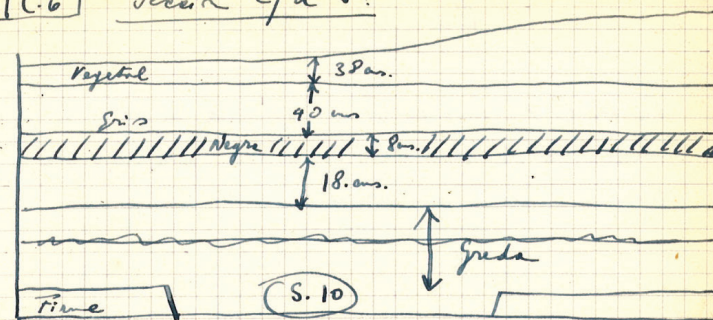 C.6
Vegetal
38 cms.
40 cms
Gris
Negra
8 cms.
18. cms.
Greda
S. 10
Firme